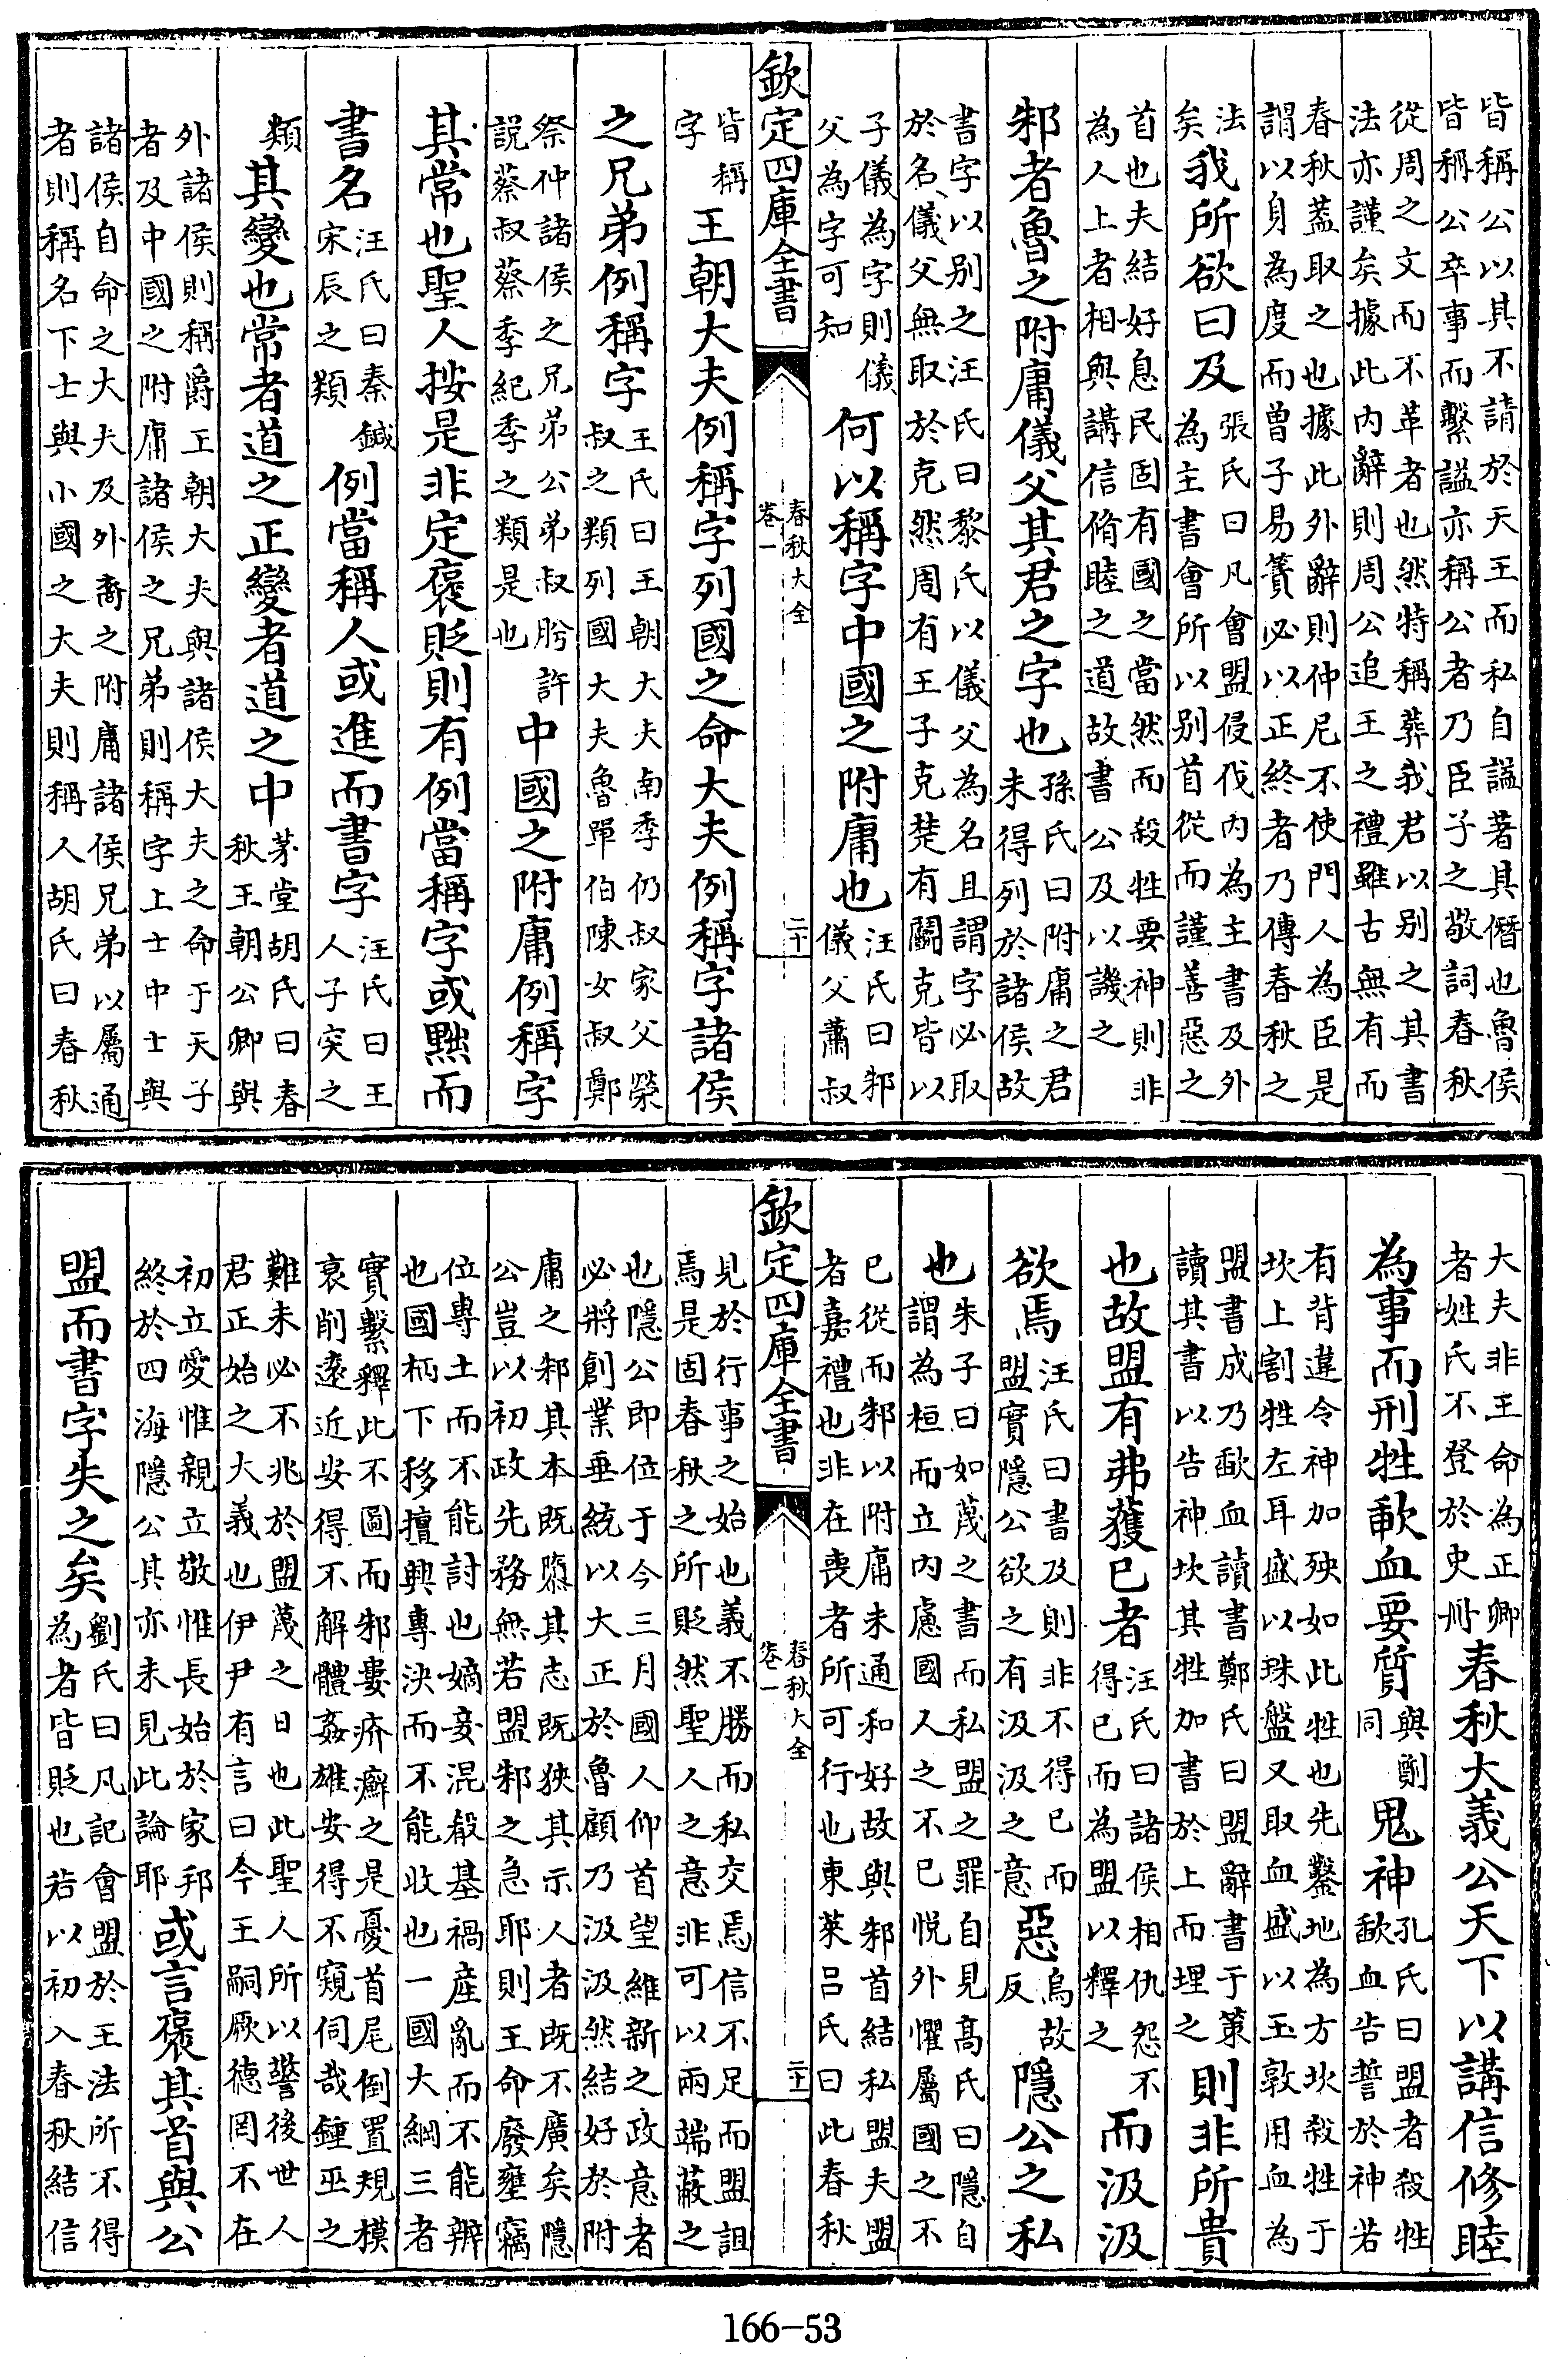 皆稱公以其不請於天王而私自謚著其僭也魯侯
皆稱公卒事而繫謚亦稱公者乃臣子之敬詞春秋
從周之文而不革者也然特稱葬我君以别之其書
法亦謹矣據此内辭則周公追王之禮雖古無有而
春秋葢取之也據此外辭則仲尼不使門人為臣是
謂以身為度而曾子易簀必以正終者乃傳春秋之
法矣我所欲曰及張氏曰凡會盟侵伐内為主書及外為主書會所以别首從而謹善惡之
首也夫結好息民固有國之當然而殺牲要神則非
為人上者相與講信脩睦之道故書公及以譏之
邾者魯之附庸儀父其君之字也孫氏曰附庸之君未得列於諸侯故
書字以别之汪氏曰黎氏以儀父為名且謂字必取
於名儀父無取於克然周有王子克楚有鬭克皆以
子儀為字則儀父為字可知何以稱字中國之附庸也汪氏曰邾儀父蕭叔
欽定四庫全書 春秋大全 卷一 二十
皆稱字王朝大夫例稱字列國之命大夫例稱字諸侯
之兄弟例稱字王氏曰王朝大夫南季仍叔家父榮叔之類列國大夫魯單伯陳女叔鄭
祭仲諸侯之兄弟公弟叔肹許說蔡叔蔡季紀季之類是也中國之附庸例稱字
其常也聖人按是非定褒貶則有例當稱字或黜而
書名汪氏曰秦鍼宋辰之類例當稱人或進而書字汪氏曰王人子突之
類其變也常者道之正變者道之中茅堂胡氏曰春秋王朝公卿與
外諸侯則稱爵王朝大夫與諸侯大夫之命于天子
者及中國之附庸諸侯之兄弟則稱字上士中士與
諸侯自命之大夫及外裔之附庸諸侯兄弟以屬通
者則稱名下士與小國之大夫則稱人胡氏曰春秋
大夫非王命為正卿
者姓氏不登於史冊春秋大義公天下以講信修睦
為事而刑牲歃血要質與劑同鬼神孔氏曰盟者殺牲歃血告誓於神若
有背違令神加殃如此牲也先鑿地為方坎殺牲于
坎上割牲左耳盛以珠盤又取血盛以玉敦用血為
盟書成乃歃血讀書鄭氏曰盟辭書于策
讀其書以告神坎其牲加書於上而埋之則非所貴
也故盟有弗獲已者汪氏曰諸侯相仇怨不得已而為盟以釋之而汲汲
欲焉汪氏曰書及則非不得已而盟實隱公欲之有汲汲之意惡烏故反隱公之私
也朱子曰如蔑之書而私盟之罪自見髙氏曰隱自謂為桓而立内慮國人之不已悦外懼屬國之不
已從而邾以附庸未通和好故與邾首結私盟夫盟
者嘉禮也非在喪者所可行也東萊吕氏曰此春秋
欽定四庫全書 春秋大全 卷一 二十一
見於行事之始也義不勝而私交焉信不足而盟詛
焉是固春秋之所貶然聖人之意非可以兩端蔽之
也隱公即位于今三月國人仰首望維新之政意者
必將創業垂統以大正於魯顧乃汲汲然結好於附
庸之邾其本既隳其志既狹其示人者既不廣矣隱
公豈以初政先務無若盟邾之急耶則王命廢壅竊
位專土而不能討也嫡妾混殽基禍産亂而不能辨
也國柄下移擅興專決而不能收也一國大綱三者
實繫釋此不圖而邾婁疥癬之是憂首尾倒置規模
衰削逺近安得不解體姦雄安得不窺伺哉鍾巫之
難未必不兆於盟蔑之日也此聖人所以警後世人
君正始之大義也伊尹有言曰今王嗣厥徳罔不在
初立愛惟親立敬惟長始於家邦
終於四海隱公其亦未見此論耶或言褒其首與公
盟而書字失之矣劉氏曰凡記會盟於王法所不得為者皆貶也若以初入春秋結信
166-53